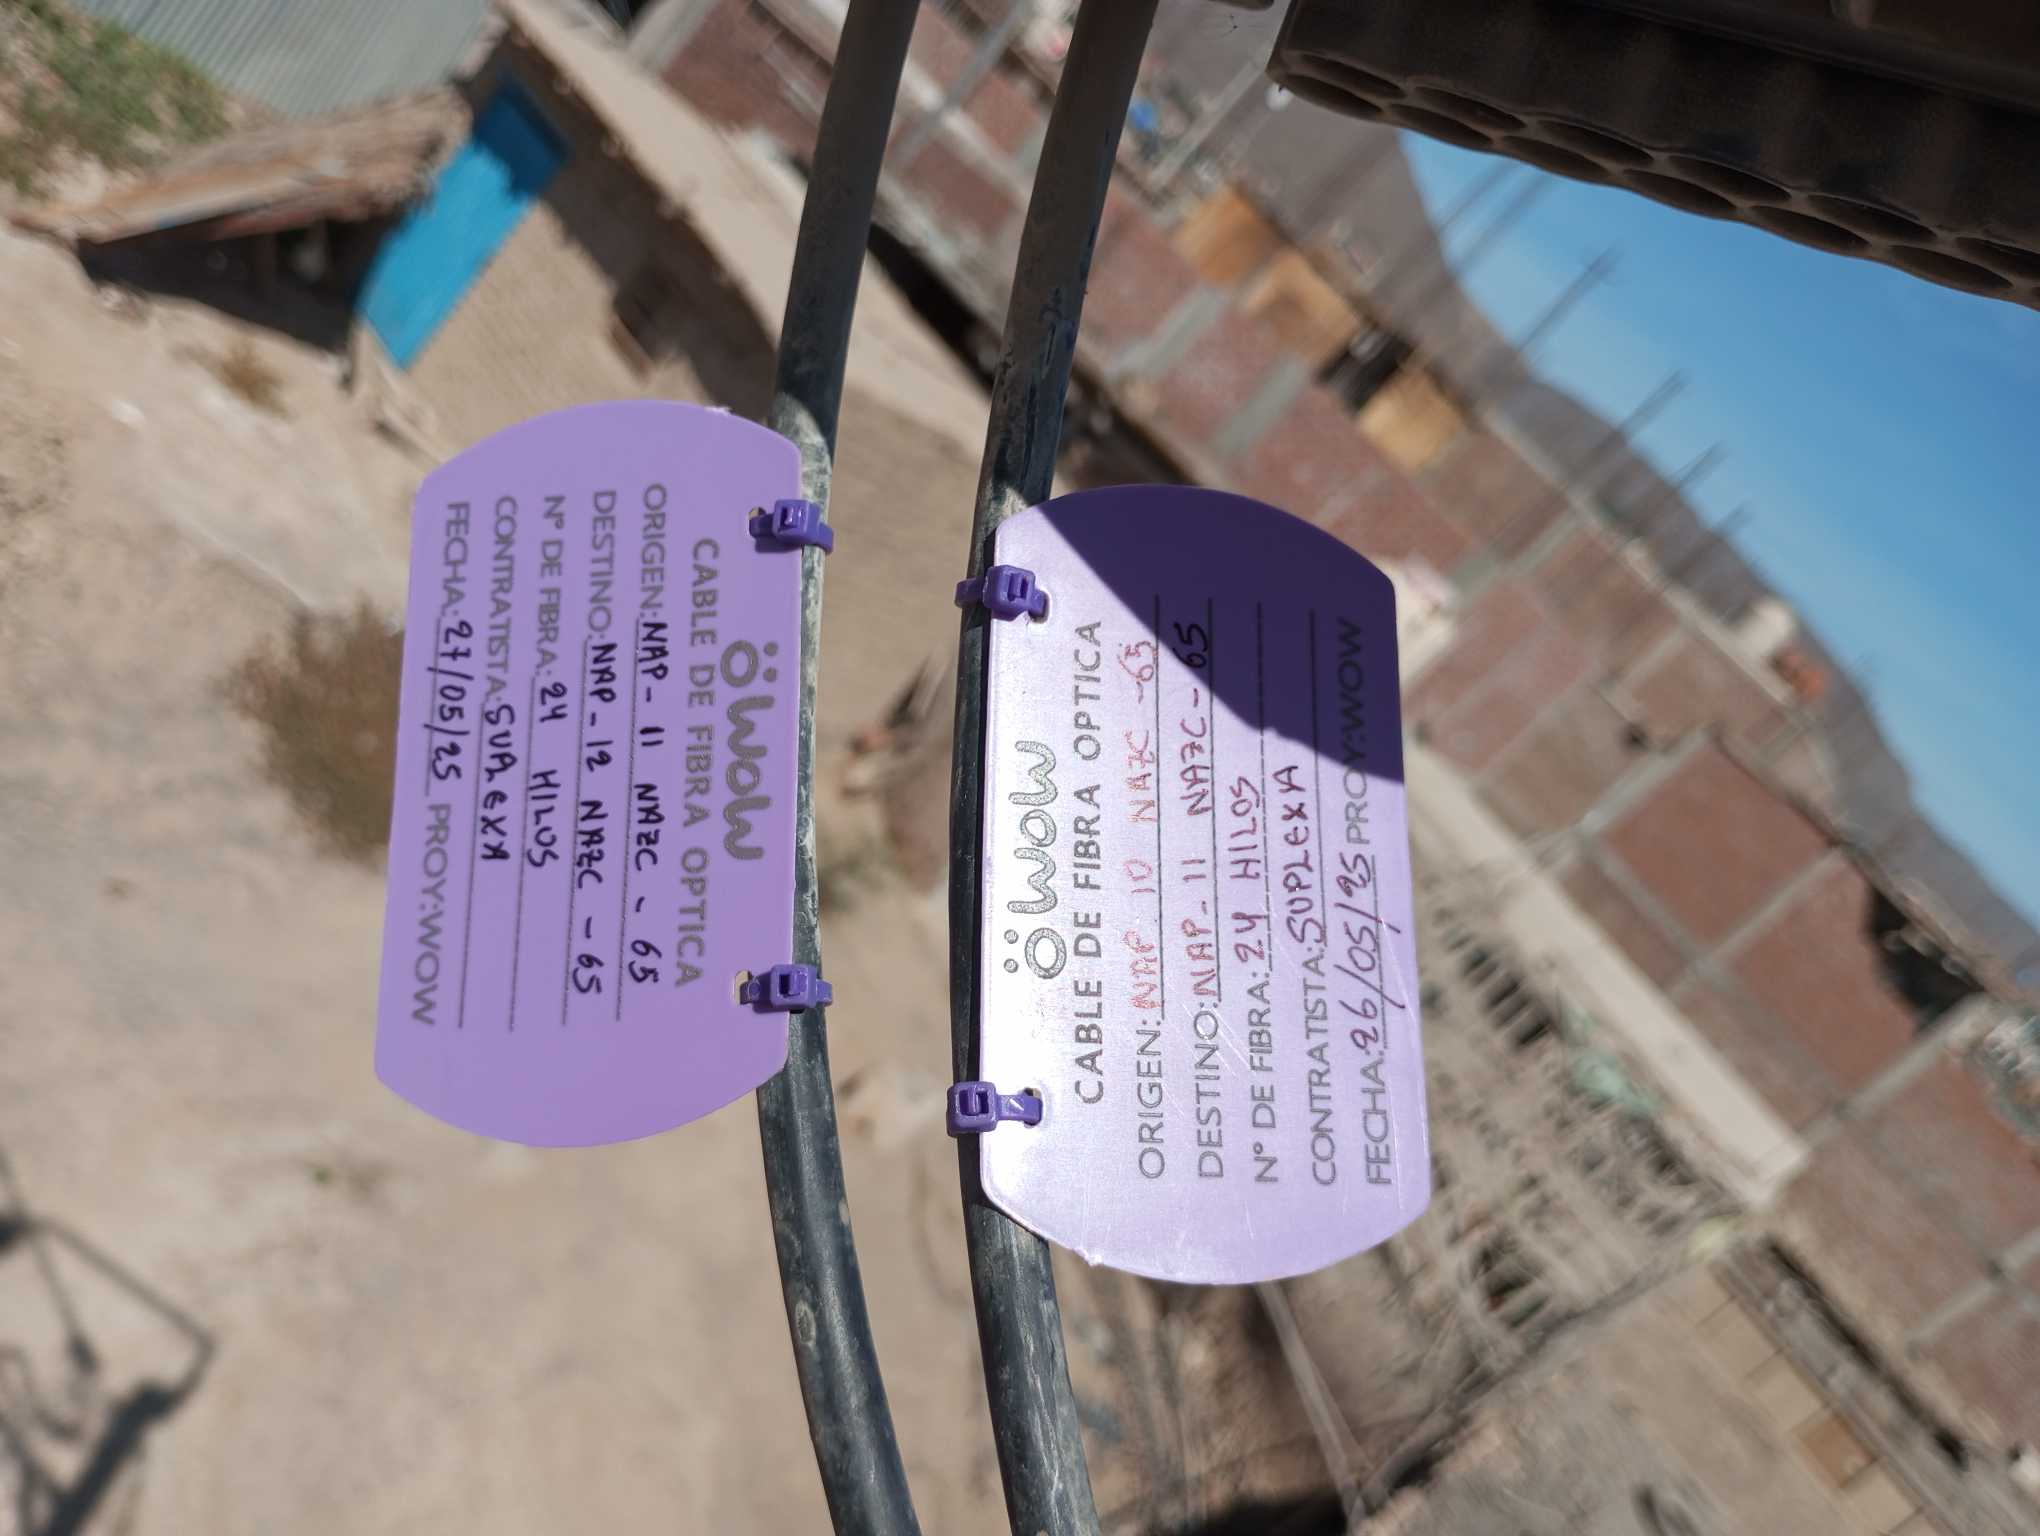 WOW
CABLE DE FIBRA OPTICA
ORIGEN: NAP - 11 NAZC - 65
DESTINO: NAP - 12 NAZC - 65
N° DE FIBRA: 24 HILOS
CONTRATISTA: SUPLEXA
FECHA: 27/05/25 PROY:WOW
WOW
CABLE DE FIBRA OPTICA
ORIGEN: NAP 10 NAZC - 65
DESTINO: NAP - 11 NAZC - 65
N° DE FIBRA: 24 HILOS
CONTRATISTA: SUPLEXA
FECHA: 26/05/25 PROY:WOW